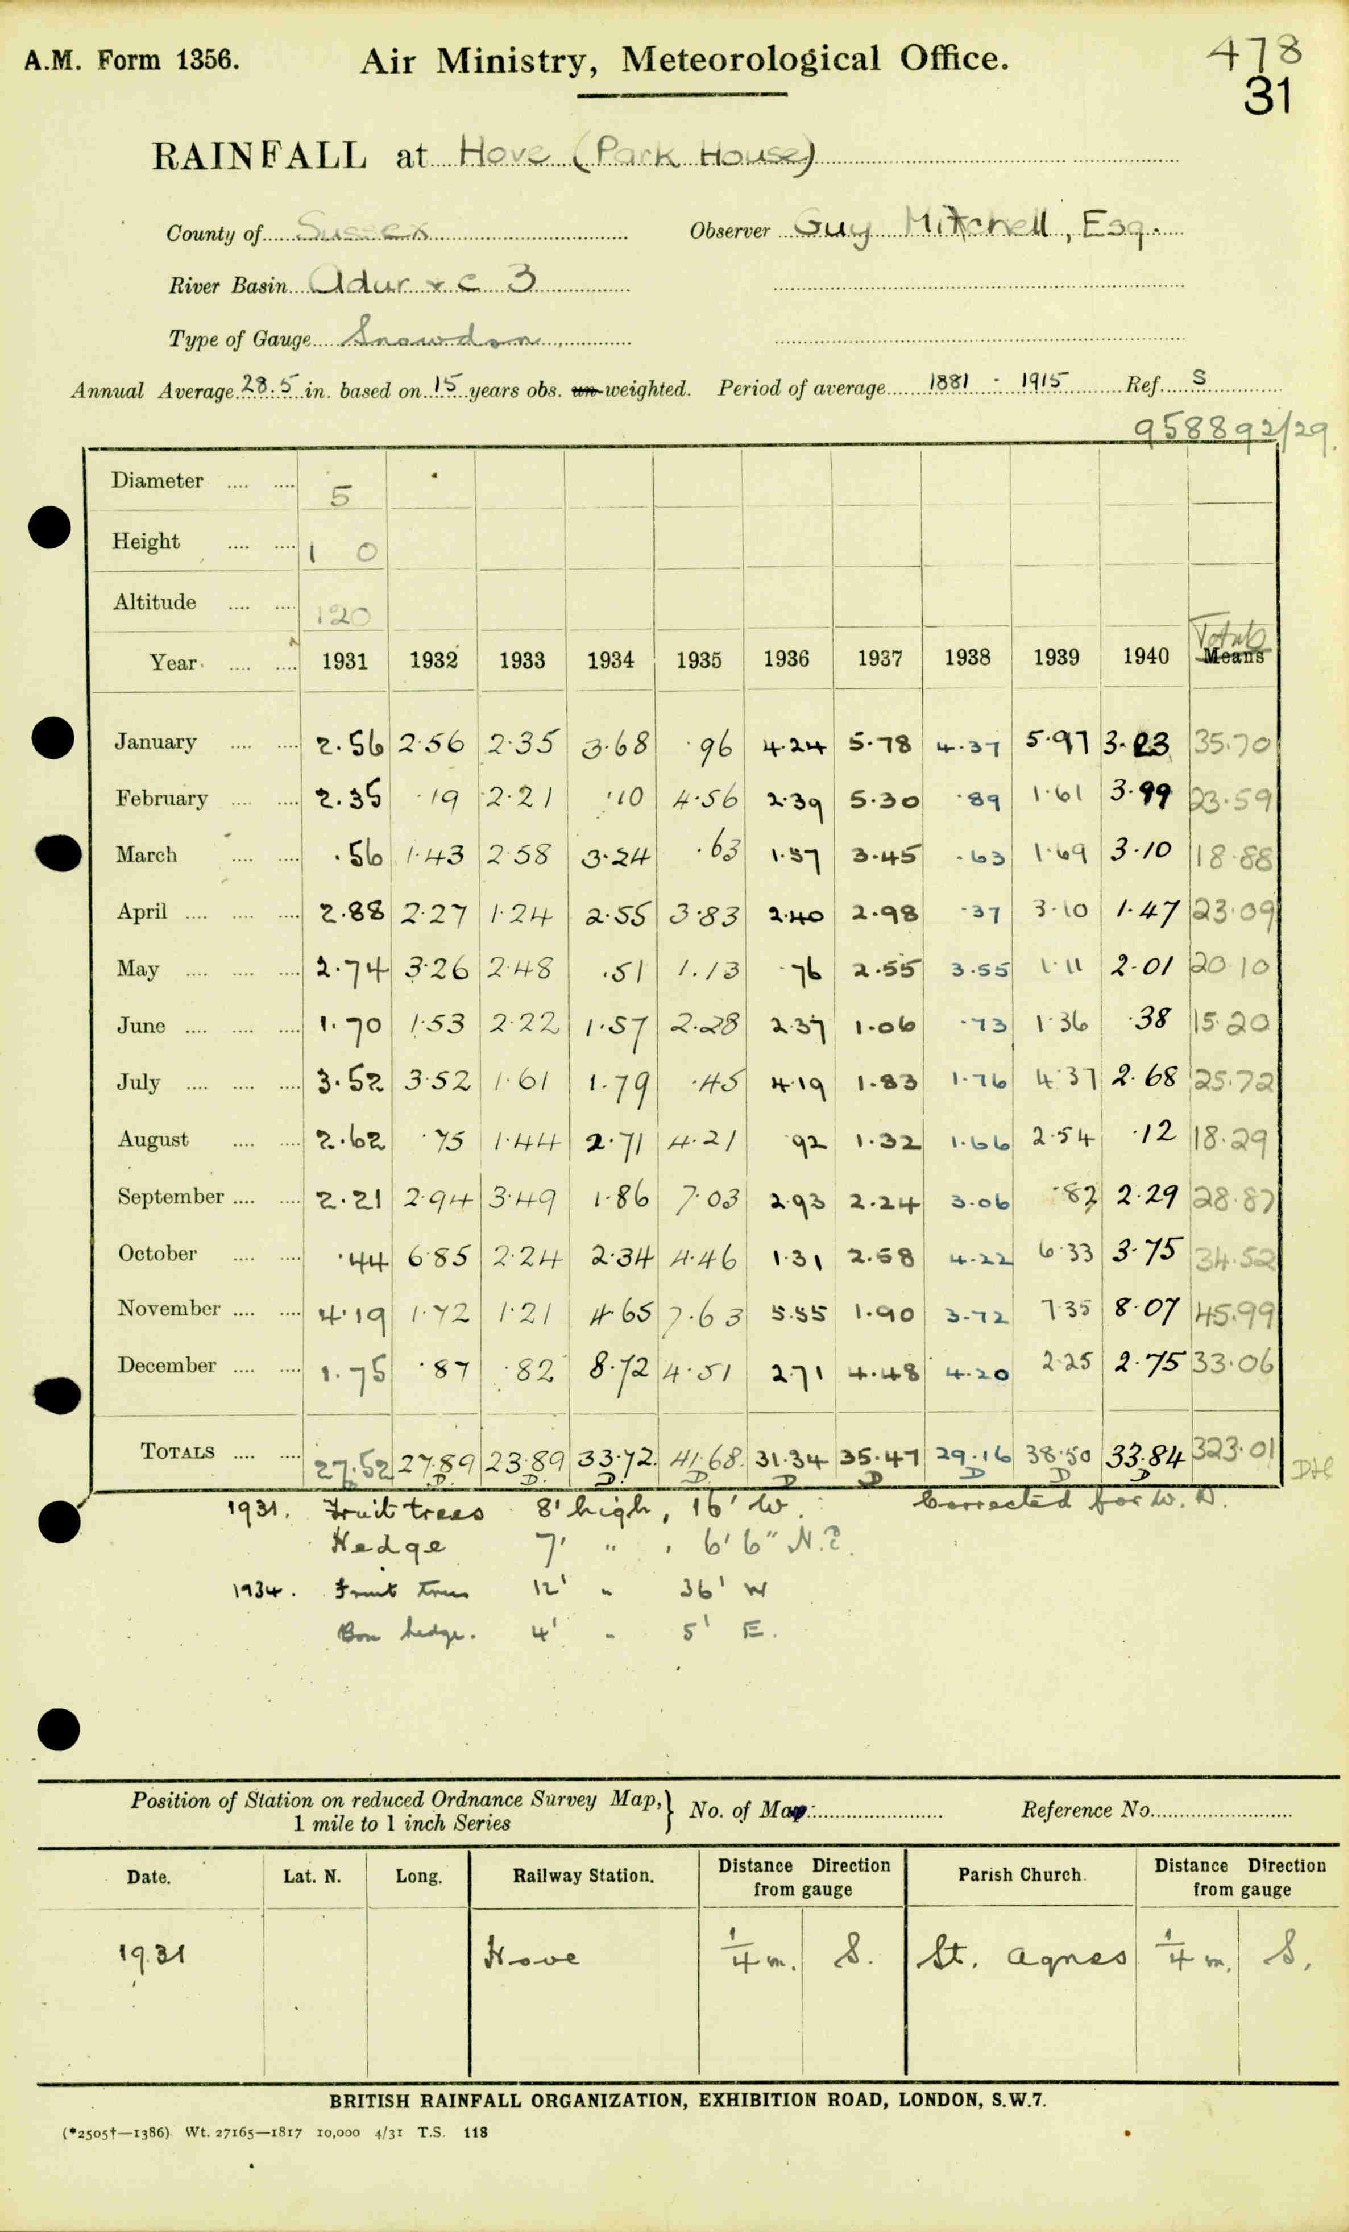 A.M. Form 1356. Air Ministry, Meteorological Office. 478
31
RAINFALL at Hove (Park House)
County of Sussex Observer Guy Mitchell, Esq.
River Basin Adur & c 3
Type of Gauge Snowdon
Annual Average 28.5 in. based on 15 years obs. un-weighted. Period of average 1881 - 1915 Ref. S
958892/29.
Diameter .... .... 5
Height .... .... 1 0
Altitude .... .... 120
Totals
Year .... .... 1931 1932 1933 1934 1935 1936 1937 1938 1939 1940 Means
January .... .... 2.56 2.56 2.35 3.68 .96 4.24 5.78 4.37 5.97 3.23 35.70
February .... .... 2.35 .19 2.21 .10 4.56 2.39 5.30 .89 1.61 3.99 23.59
March .... .... .56 1.43 2.58 3.24 .63 1.57 3.45 .63 1.69 3.10 18.88
April .... .... .... 2.88 2.27 1.24 2.55 3.83 2.40 2.98 .37 3.10 1.47 23.09
May .... .... .... 2.74 3.26 2.48 .51 1.13 .76 2.55 3.55 1.11 2.01 20.10
June .... .... .... 1.70 1.53 2.22 1.57 2.28 2.37 1.06 .73 1.36 .38 15.20
July .... .... .... 3.52 3.52 1.61 1.79 .45 4.19 1.83 1.76 4.37 2.68 25.72
August .... .... 2.62 .75 1.44 2.71 4.21 .92 1.32 1.66 2.54 .12 18.29
September .... .... 2.21 2.94 3.49 1.86 7.03 2.93 2.24 3.06 .82 2.29 28.87
October .... .... .44 6.85 2.24 2.34 4.46 1.31 2.58 4.22 6.33 3.75 34.52
November .... .... 4.19 1.72 1.21 4.65 7.63 5.55 1.90 3.72 7.35 8.07 45.99
December .... .... 1.75 .87 .82 8.72 4.51 2.71 4.48 4.20 2.25 2.75 33.06
TOTALS .... .... 27.52 27.89 23.89 33.72 41.68 31.34 35.47 29.16 38.50 33.84 323.01
D D D D D D D D D
1931. Fruit trees 8' high, 16' W. Corrected for W. D.
Hedge 7' " , 6'6" N.E.
1934. Fruit trees 12' " 36' W
Box hedge. 4' " 5' E.
Position of Station on reduced Ordnance Survey Map, } No. of Map: Reference No.
1 mile to 1 inch Series
Date. Lat. N. Long. Railway Station. Distance Direction from gauge Parish Church. Distance Direction from gauge
1931 Hove 1/4 m. S. St. Agnes 1/4 m. S.
BRITISH RAINFALL ORGANIZATION, EXHIBITION ROAD, LONDON, S.W.7.
(*2505†—1386) Wt. 27165—1817 10,000 4/31 T.S. 118